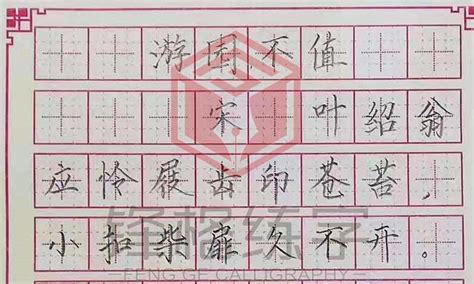 游园不值
宋 叶绍翁
应怜屐齿印苍苔，
小扣柴扉久不开。
锋格练字
FENG GE CALLIGRAPHY